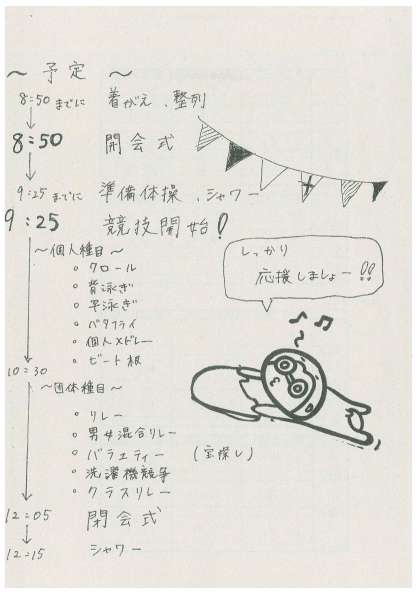 ～ 予定 ～
8:50 までに 着がえ、整列
8:50 開会式
9:25 までに 準備体操、シャワー
9:25 競技開始!
～個人種目～
○ クロール
○ 背泳ぎ
○ 平泳ぎ
○ バタフライ
○ 個人メドレー
○ ビート板
しっかり
応援しましょー!!
10:30
～団体種目～
○ リレー
○ 男女混合リレー
○ バラエティー (宝探し)
○ 洗濯機競争
○ クラスリレー
12:05 閉会式
12:15 シャワー